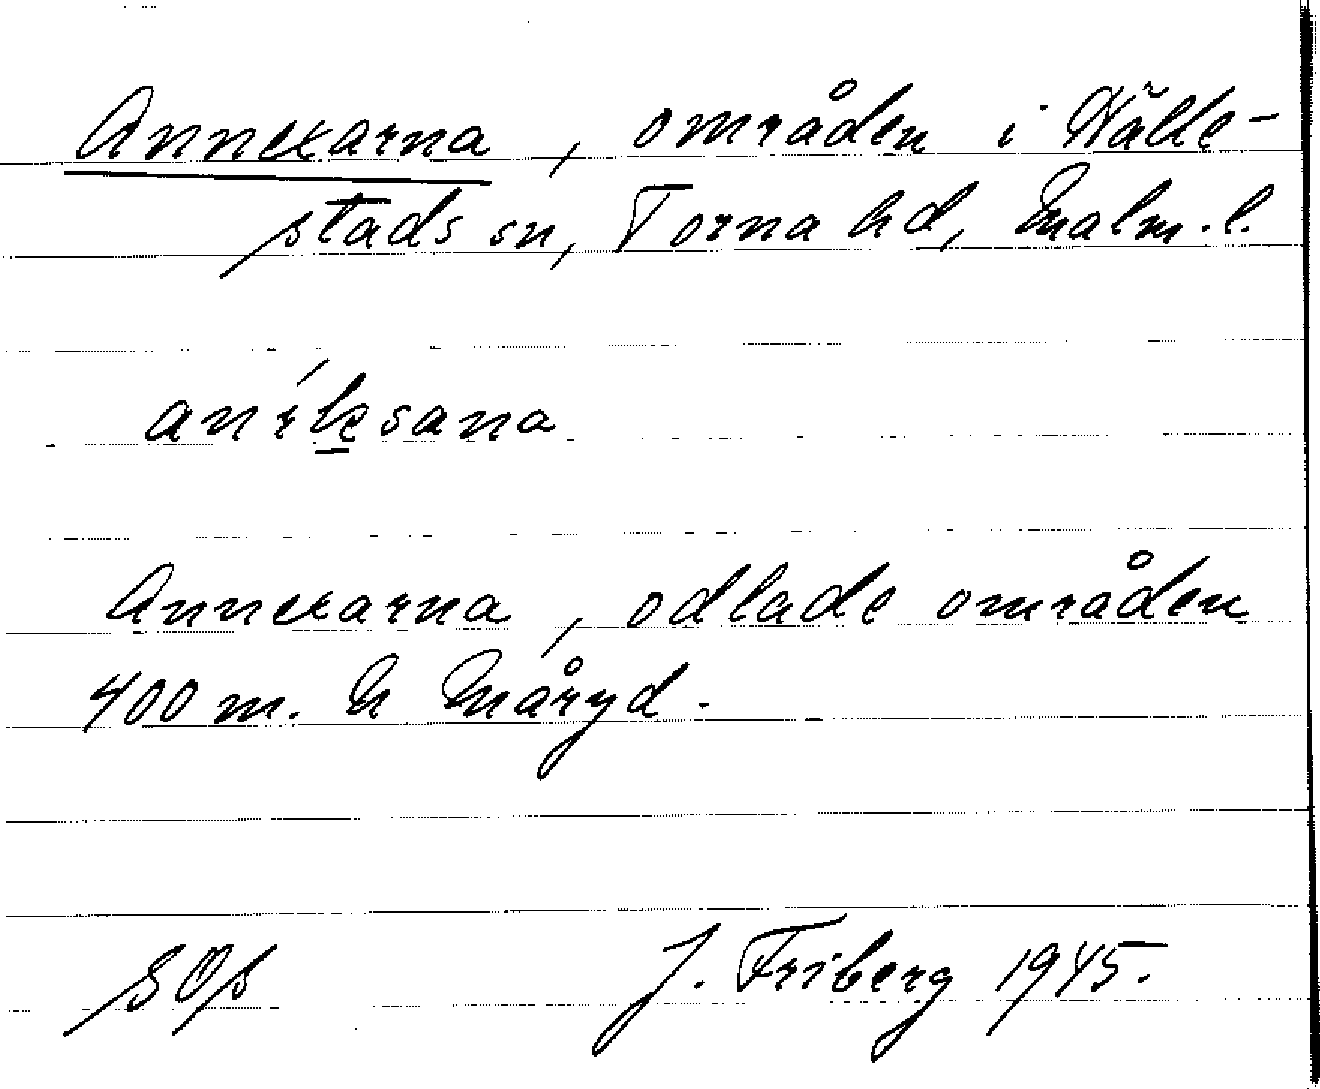 Annexarna, områden i Hälle-
stads sn, Torna hd, Malm. l.
aníksana
Annexarna, odlade områden
400 m. N Måryd.
SOs J. Friberg 1945.